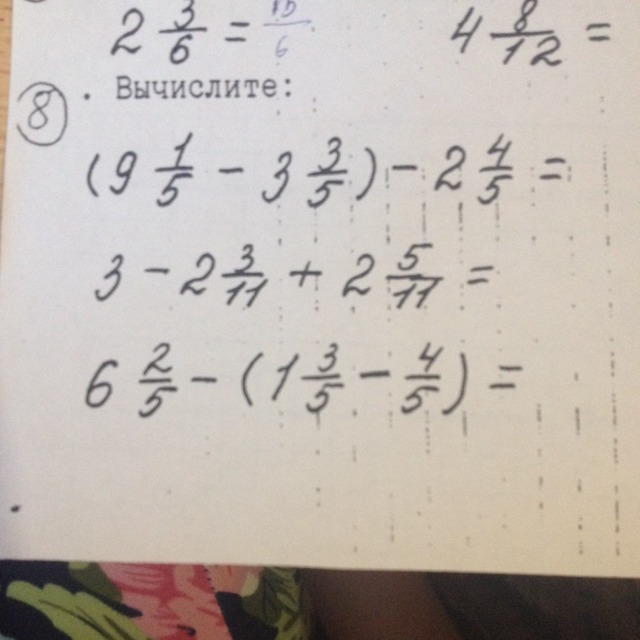 2 3/6 = 15/6 4 8/12 =
8. Вычислите:
(9 1/5 - 3 3/5) - 2 4/5 =
3 - 2 3/11 + 2 5/11 =
6 2/5 - (1 3/5 - 4/5) =